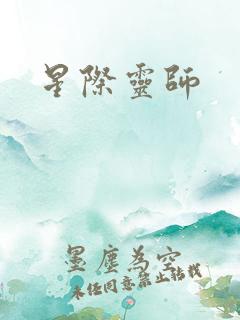 星際靈師
墨塵為空
未經同意禁止轉載